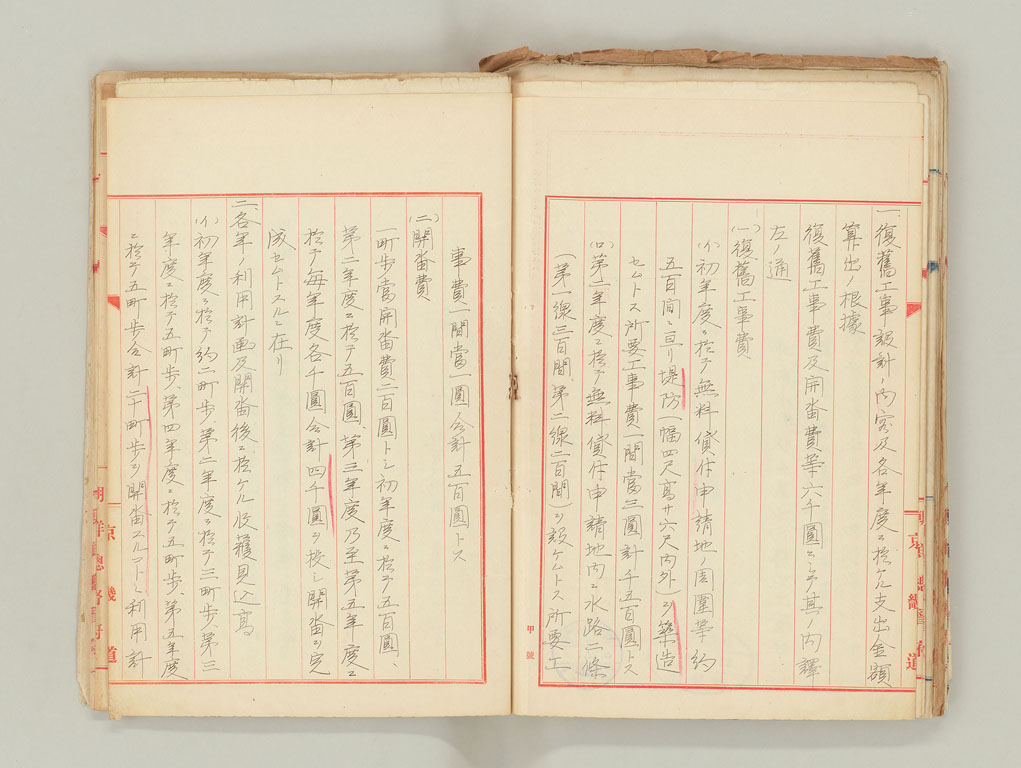 一、復舊工事設計ノ内容及各年度ニ於ケル支出金額
算出ノ根據
復舊工事費及開畓費等六千圓ニシテ其ノ内譯
左ノ通
(一)復舊工事費
(イ)初年度ニ於テ無料貸付申請地ノ周圍等約
五百間ニ亘リ堤防(幅四尺高サ六尺内外)ヲ築造
セムトス所要工事費一間當三圓計千五百圓トス
(ロ)第二年度ニ於テ無料貸付申請地内ニ水路二條
(第一線三百間、第二線二百間)ヲ設ケムトス所要工
事費一間當一圓ノ合計五百圓トス
(二)開畓費
一町歩當開畓費二百圓トシ初年度ニ於テ五百圓、
第二年度ニ於テ五百圓、第三年度乃至第五年度ニ
於テ毎年度各千圓合計四千圓ヲ投シ開畓ヲ完
成セムトスルニ在リ
二、各年ノ利用計画及開畓後ニ於ケル收穫見込高
(イ)初年度ニ於テ約二町歩、第二年度ニ於テ三町歩、第三
年度ニ於テ五町歩、第四年度ニ於テ五町歩、第五年度
ニ於テ五町歩合計二十町歩ヲ開畓スルコトニ利用計
甲號
京畿道